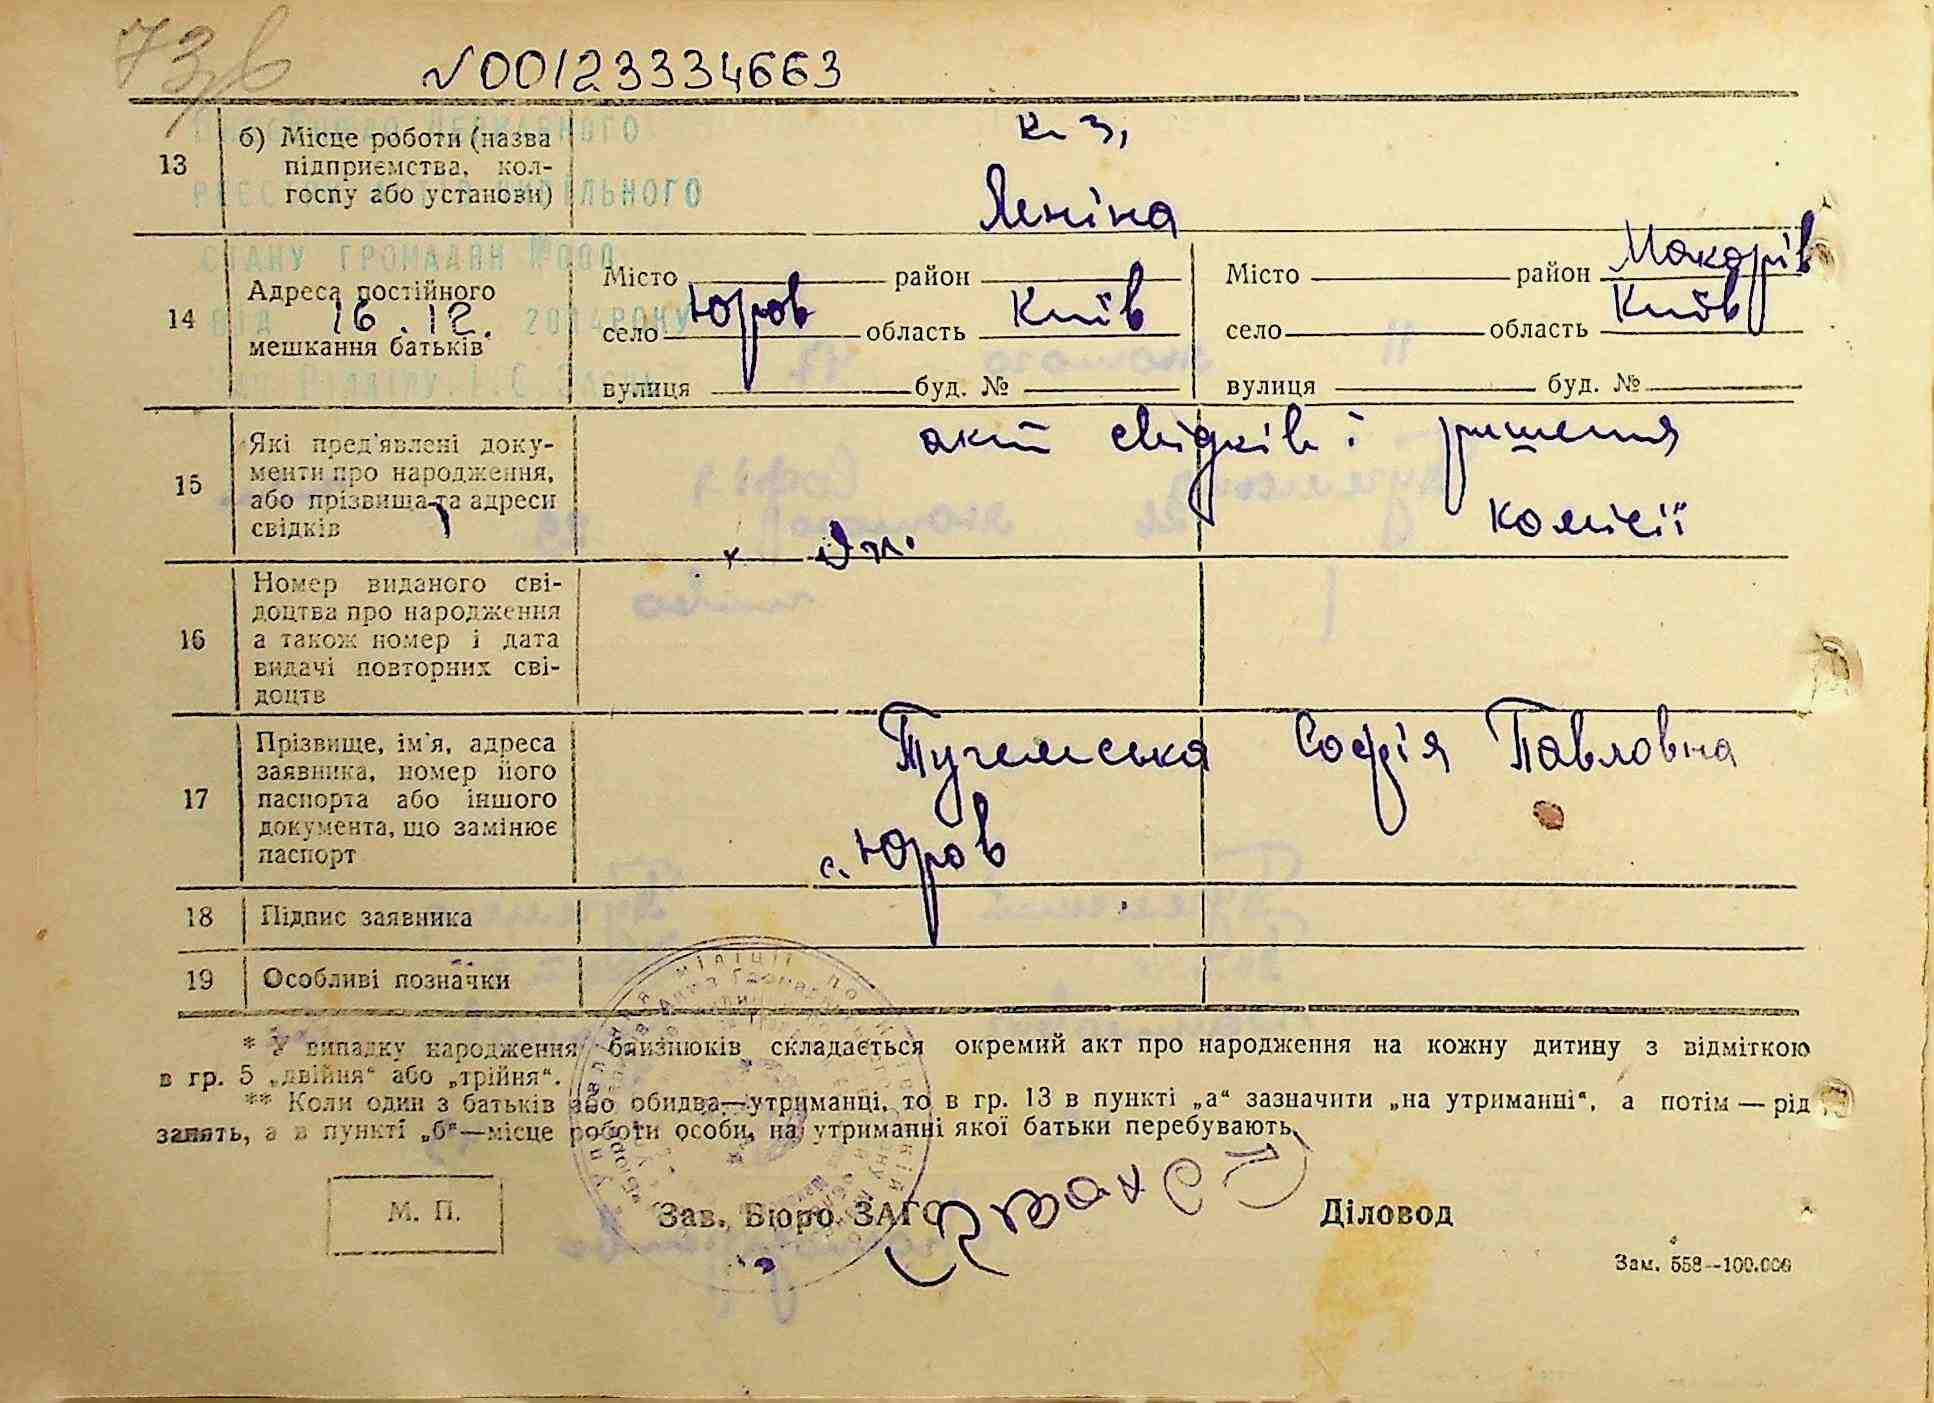 73
№00123334663
13
б) Місце роботи (назва
підприємства, кол-
госпу або установи)
к-з,
Леніна
ДЕРЖАВНОГО
СТАНУ ГРОМАДЯН №000
ВІД 16.12. 2014РОКУ
14
Адреса постійного
мешкання батьків
Місто район
село Юров область Київ
вулиця буд. №
Місто район Макарів
село область Київ
вулиця буд. №
15
Які пред'явлені доку-
менти про народження,
або прізвища та адреси
свідків
акт свідків і ришення
комісії
16
Номер виданого сві-
доцтва про народження
а також номер і дата
видачі повторних сві-
доцтв
17
Прізвище, ім'я, адреса
заявника, номер його
паспорта або іншого
документа, що замінює
паспорт
Тучемська Софія Павловна
с. Юров
18
Підпис заявника
19
Особливі позначки
* У випадку народження близнюків складається окремий акт про народження на кожну дитину з відміткою
в гр. 5 „двійня“ або „трійня“.
** Коли один з батьків або обидва—утриманці, то в гр. 13 в пункті „а“ зазначити „на утриманні“, а потім — рід
занять, а в пункті „б“—місце роботи особи, на утриманні якої батьки перебувають.
М. П.
Зав. Бюро ЗАГС
Діловод
Зам. 558--100.000